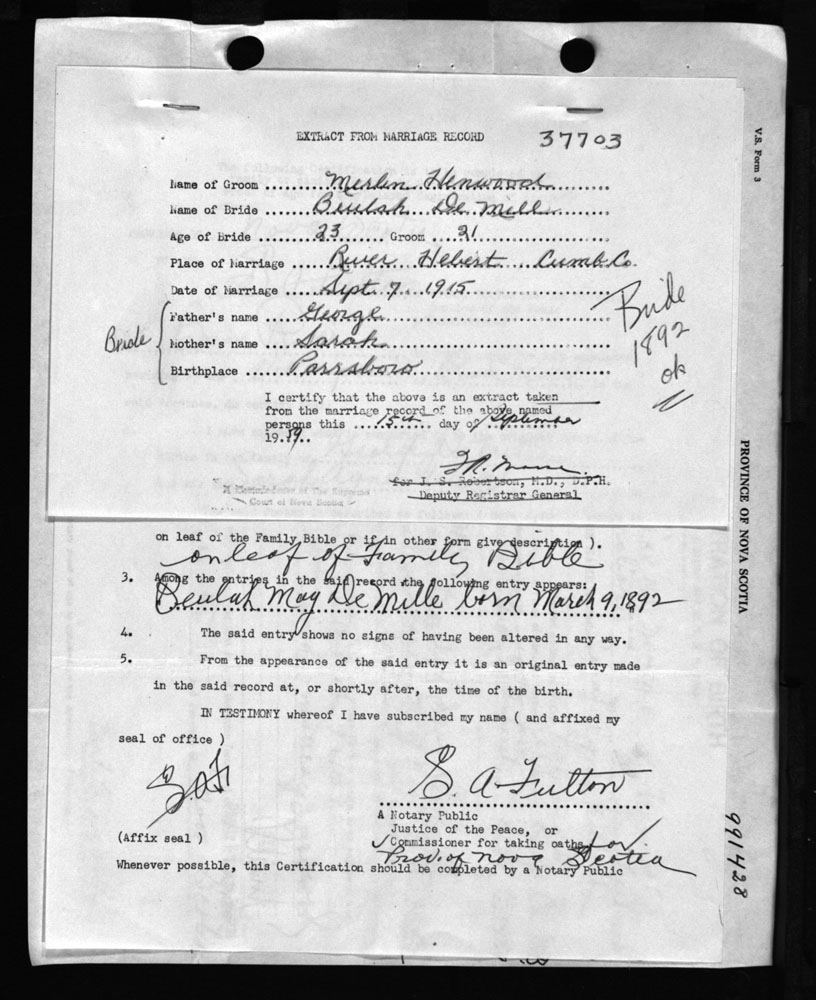 EXTRACT FROM MARRIAGE RECORD 37703
Name of Groom ........ Merlin Henwood ........
Name of Bride ........ Beulah De Mill ........
Age of Bride ........ 23 ........ Groom ... 21 ........
Place of Marriage ..... River Hebert ... Cumb. Co.
Date of Marriage ..... Sept. 7. 1915 ........
Father's name .... George ........
Bride
Mother's name .... Sarah ........
Birthplace ..... Parrsboro ........
Bride
1892
ok
I certify that the above is an extract taken
from the marriage record of the above named
persons this .... 15th .... day of September
19.59..
for J. S. Robertson, M.D., D.P.H.
Deputy Registrar General
A Commissioner of The Supreme
Court of Nova Scotia
on leaf of the Family Bible or if in other form give description ).
on leaf of Family Bible
3. Among the entries in the said record the following entry appears:
Beulah May De Mille born March 9, 1892
4. The said entry shows no signs of having been altered in any way.
5. From the appearance of the said entry it is an original entry made
in the said record at, or shortly after, the time of the birth.
IN TESTIMONY whereof I have subscribed my name ( and affixed my
seal of office )
S. A. F.
S. A. Fulton
A Notary Public
Justice of the Peace, or
(Affix seal )
✓ Commissioner for taking oaths for
Prov. of Nova Scotia
Whenever possible, this Certification should be completed by a Notary Public
V.S. Form 3
PROVINCE OF NOVA SCOTIA
991428